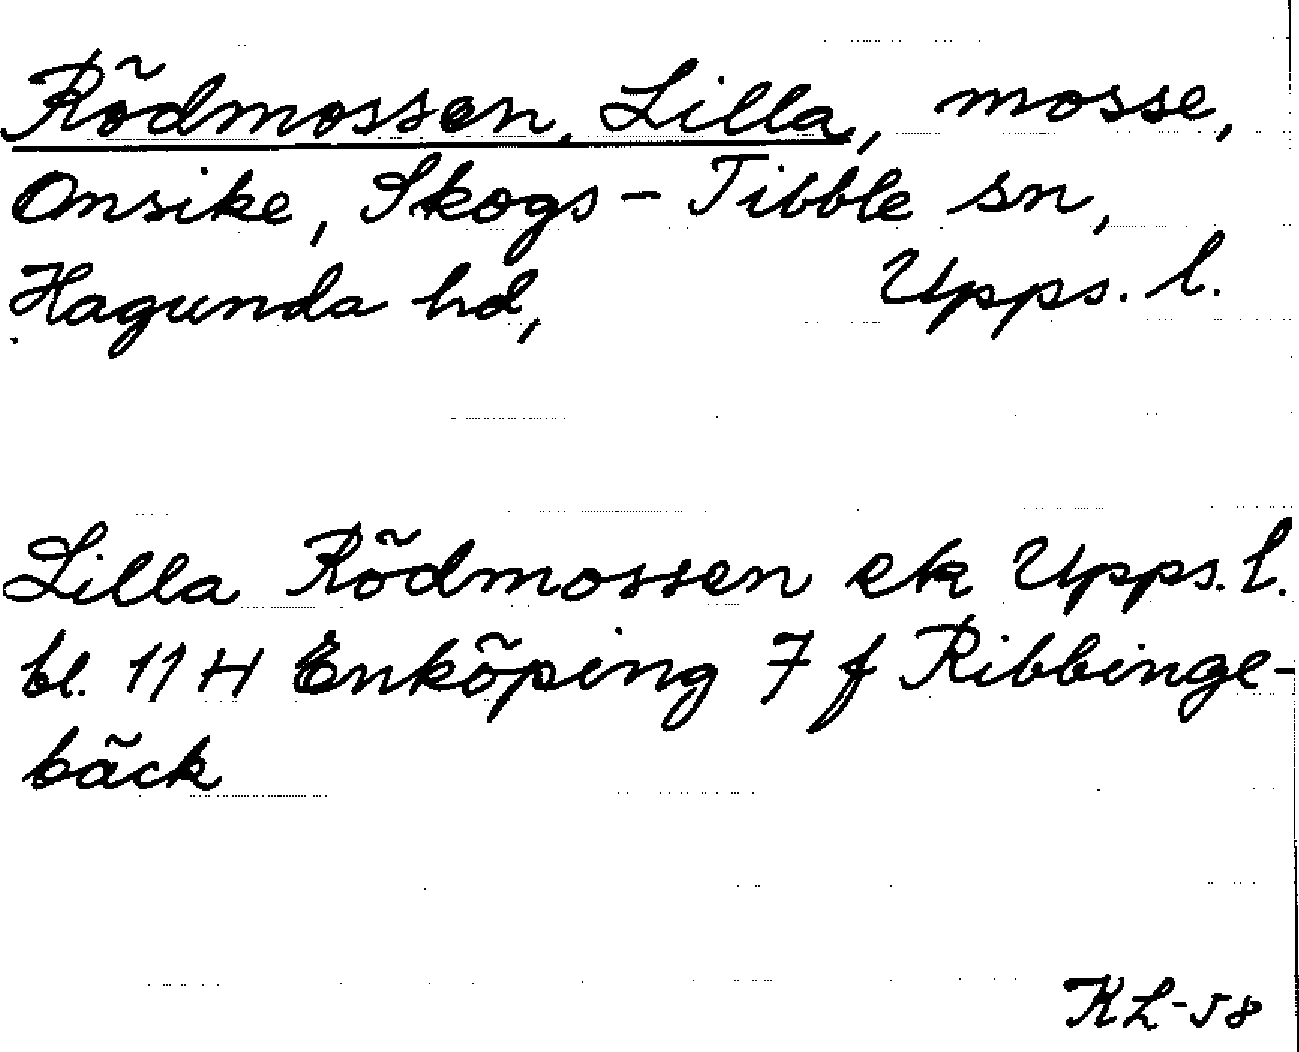 Rödmossen, Lilla, mosse,
Onsike, Skogs-Tibble sn,
Hagunda hd, Upps. l.
Lilla Rödmossen ek Upps. l.
bl. 11 H Enköping 7 f Ribbinge-
bäck
KL-58